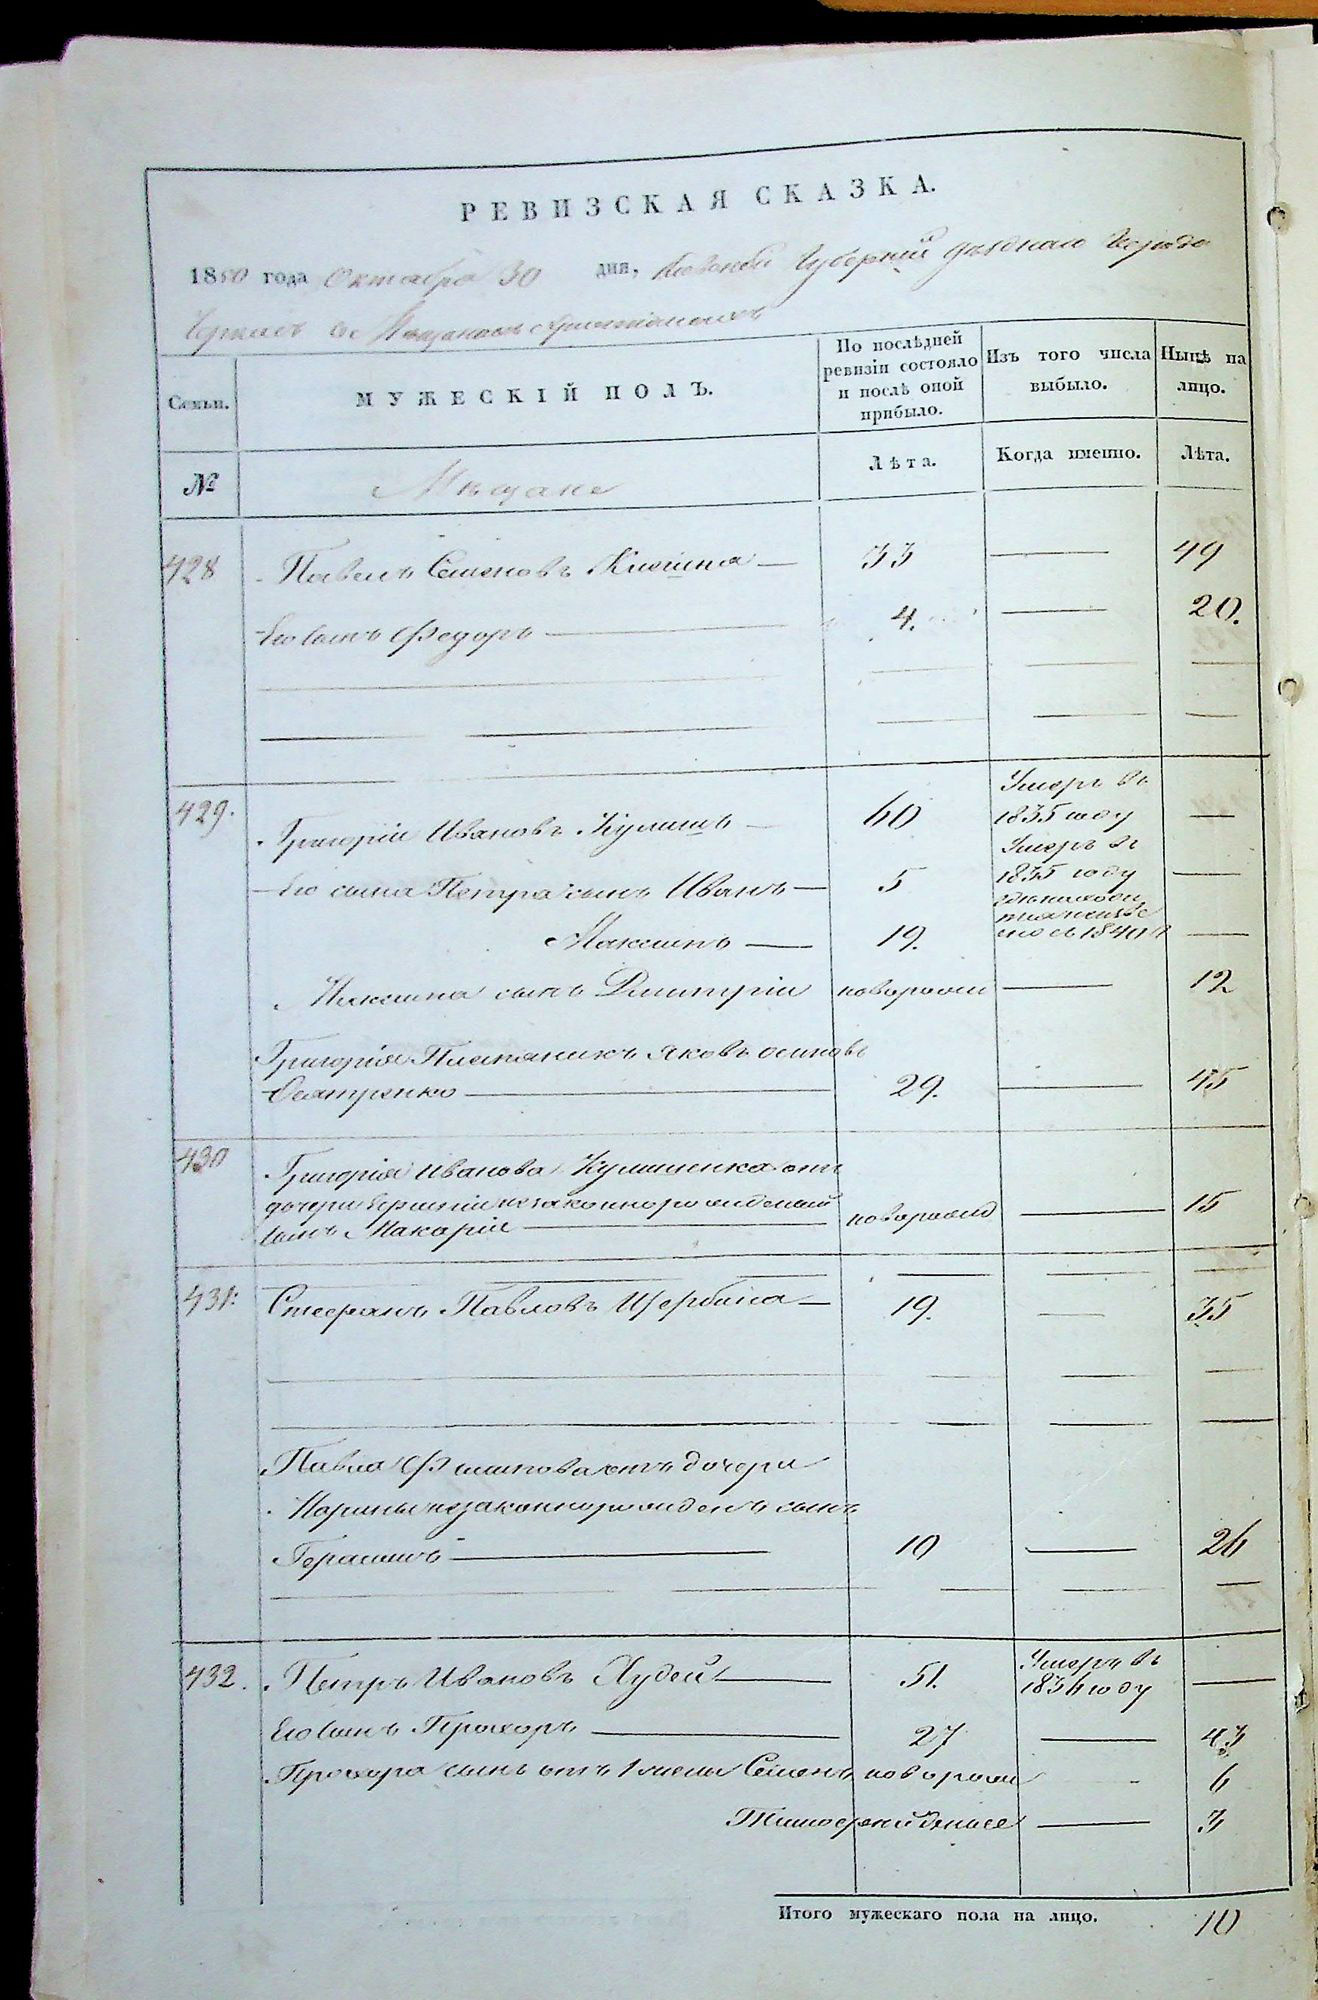 РЕВИЗСКАЯ СКАЗКА.
1850 года Октября 30 дня, Киевской Губерніи уѣзднаго Города
Черкасъ о Мѣщанахъ Христіанахъ
Семьи.
МУЖЕСКІЙ ПОЛЪ.
По послѣдней ревизіи состояло и послѣ оной прибыло.
Изъ того числа выбыло.
Нынѣ на лицо.
№
Мѣщане
Лѣта.
Когда именно.
Лѣта.
428 Павелъ Семеновъ 33 — 49
Его сынъ Федоръ — 4. — 20.
429. Григорій Ивановъ Кулишъ — 60 Умеръ въ 1835 году —
Его сына Петра сынъ Иванъ — 5 Умеръ въ 1835 году —
Максимъ — 19. съ 1840 —
Максима сынъ Дмитрій новорожд — 12
Григорія Племяникъ Яковъ осиповъ
— 29. — 45
430 Григорія Иванова Кулишенка отъ
дочери незаконнорожденный
сынъ Макарій — новорожд — 15
431: Стефанъ Павловъ Щербина — 19. — 35
Павла Филипова отъ дочери
Марины незаконнорожденъ сынъ
Герасимъ — 10 — 26
432. Петръ Ивановъ Худей — 51. Умеръ въ 1834 году —
Его сынъ Прохоръ — 27 — 43
Прохора сынъ отъ 1 жены Семенъ новорожд - 6
Тимофей — 3
Итого мужескаго пола на лицо. 10